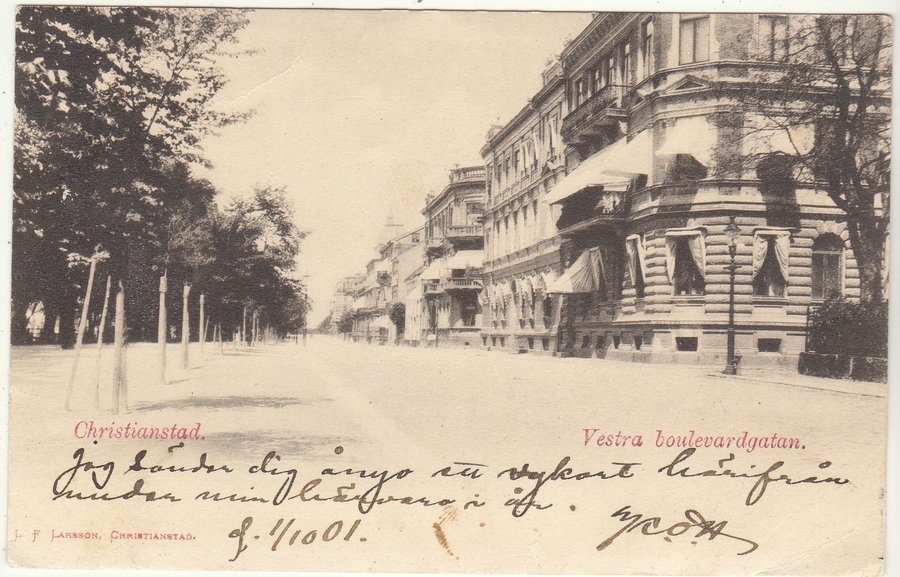 Christianstad.
Vestra boulevardgatan.
Jag sänder dig ånyo ett vykort härifrån
under min härvaro i år.
L F LARSSON, CHRISTIANSTAD.
d. 1/10 01.